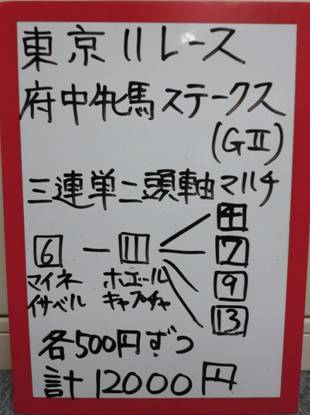 東京11レース
府中牝馬ステークス
(GⅡ)
三連単二頭軸マルチ
6 — 11
4
7
9
13
マイネイサベル
ホエールキャプチャ
各500円ずつ
計12000円